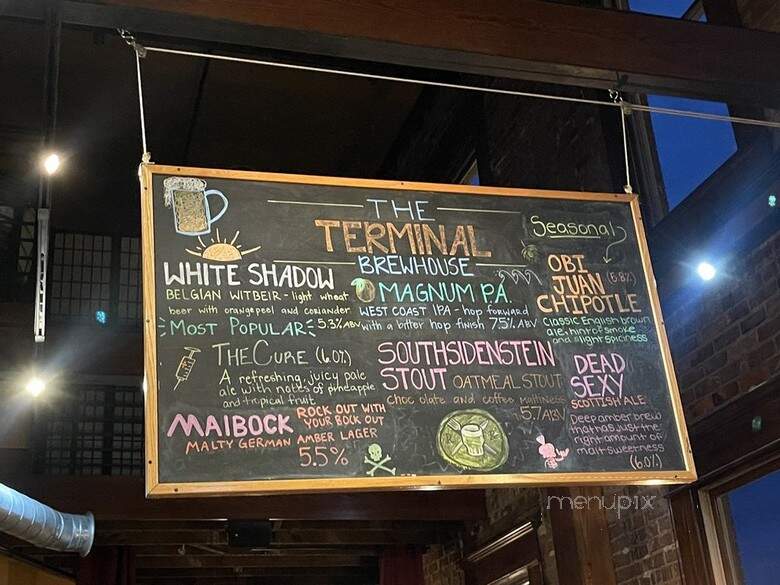 THE
TERMINAL
BREWHOUSE
Seasonal
WHITE SHADOW
BELGIAN WITBEIR - light wheat
beer with orange peel and coriander
MOST POPULAR 5.3% ABV
MAGNUM P.A.
WEST COAST IPA - hop forward
with a bitter hop finish 7.5% ABV
OBI
JUAN (6.8%)
CHIPOTLE
Classic English brown
ale, hint of smoke
and slight spiciness
THE CURE (6.0%)
A refreshing, juicy pale
ale with notes of pineapple
and tropical fruit
SOUTHSIDENSTEIN
STOUT OATMEAL STOUT
chocolate and coffee maltiness
5.7 ABV
DEAD
SEXY
SCOTTISH ALE
Deep amber brew
that has just the
right amount of
malt sweetness
(6.0%)
MAIBOCK ROCK OUT WITH
YOUR BOCK OUT
MALTY GERMAN AMBER LAGER
5.5%
menupix